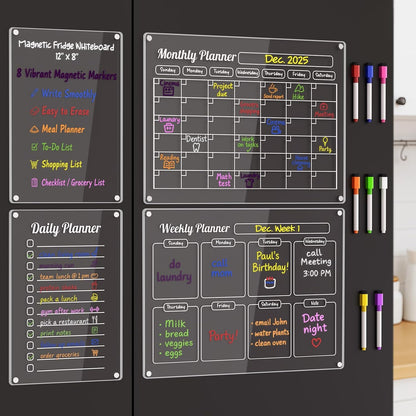 Magnetic Fridge Whiteboard
12" x 8"
8 Vibrant Magnetic Markers
Write Smoothly
Easy to Erase
Meal Planner
To-Do List
Shopping List
Checklist / Grocery List
Monthly Planner
Dec. 2025
Sunday Monday Tuesday Wednesday Thursday Friday Saturday
Project
due
Send report
Hike
Meeting
Laundry
Dentist
Work
on tasks
Party
Reading
Math
test
Daily Planner
team lunch @ 1 pm
pack a lunch
gym after work
pick a restaurant
print notes
order groceries
Weekly Planner
Dec. Week 1
Sunday
do
laundry
Monday
call
mum
Tuesday
Paul's
Birthday!
Wednesday
call
Meeting
3:00 PM
Thursday
• Milk
• bread
• veggies
• eggs
Friday
Party!
Saturday
• email John
• water plants
• clean oven
Note
Date
night